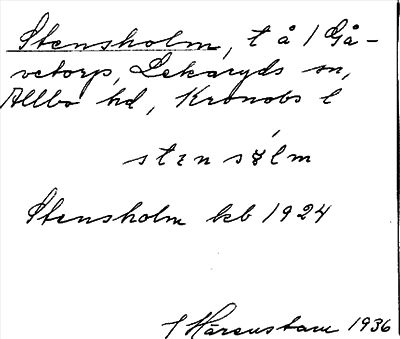 Stensholm, t å 1 Gå-
vetorp, Lekaryds sn,
Allbo hd, Kronobs l
Stensholm kb 1924
Härenstam 1936